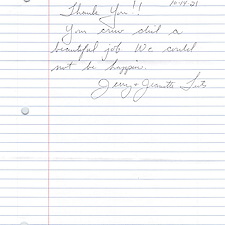 Thank You!! 10-14-21
You crew did a
beautiful job We could
not be happier.
Jerry + Jeanette